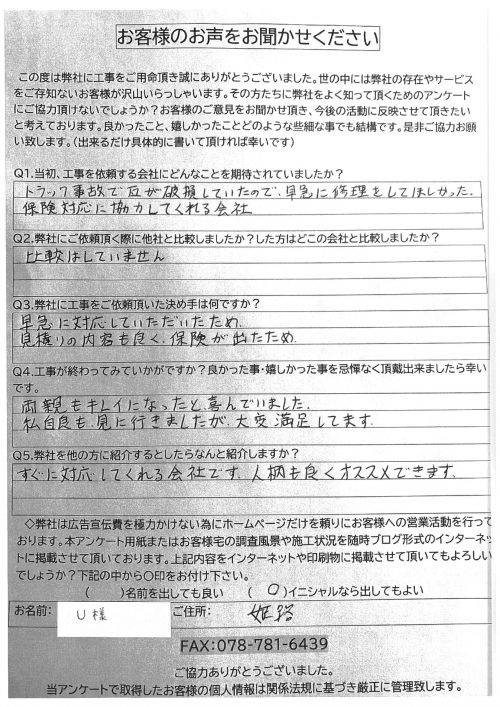 お客様のお声をお聞かせください
この度は弊社に工事をご用命頂き誠にありがとうございました。世の中には弊社の存在やサービス
をご存知ないお客様が沢山いらっしゃいます。その方たちに弊社をよく知って頂くためのアンケート
にご協力頂けないでしょうか？お客様のご意見をお聞かせ頂き、今後の活動に反映させて頂きたい
と考えております。良かったこと、嬉しかったことどのような些細な事でも結構です。是非ご協力お願
い致します。(出来るだけ具体的に書いて頂ければ幸いです)
Q1.当初、工事を依頼する会社にどんなことを期待されていましたか？
トラック事故で瓦が破損していたので、早急に修理をしてほしかった.
保険対応に協力してくれる会社
Q2.弊社にご依頼頂く際に他社と比較しましたか？した方はどこの会社と比較しましたか？
比較はしていません
Q3.弊社に工事をご依頼頂いた決め手は何ですか？
早急に対応していただいたため.
見積りの内容も良く、保険が出たため.
Q4.工事が終わってみていかがですか？良かった事・嬉しかった事を忌憚なく頂戴出来ましたら幸い
です。
両親もキレイになったと喜んでいました.
私自身も、見に行きましたが、大変満足してます.
Q5.弊社を他の方に紹介するとしたらなんと紹介しますか？
すぐに対応してくれる会社です. 人柄も良くオススメできます.
◇弊社は広告宣伝費を極力かけない為にホームページだけを頼りにお客様への営業活動を行って
おります。本アンケート用紙またはお客様宅の調査風景や施工状況を随時ブログ形式のインターネッ
トに掲載させて頂いております。上記内容をインターネットや印刷物に掲載させて頂いてもよろしい
でしょうか？下記の中から○印をお付け下さい。
(　　)名前を出しても良い　(　○　)イニシャルなら出してもよい
お名前:　U 様　ご住所:　姫路
FAX:078-781-6439
ご協力ありがとうございました。
当アンケートで取得したお客様の個人情報は関係法規に基づき厳正に管理致します。